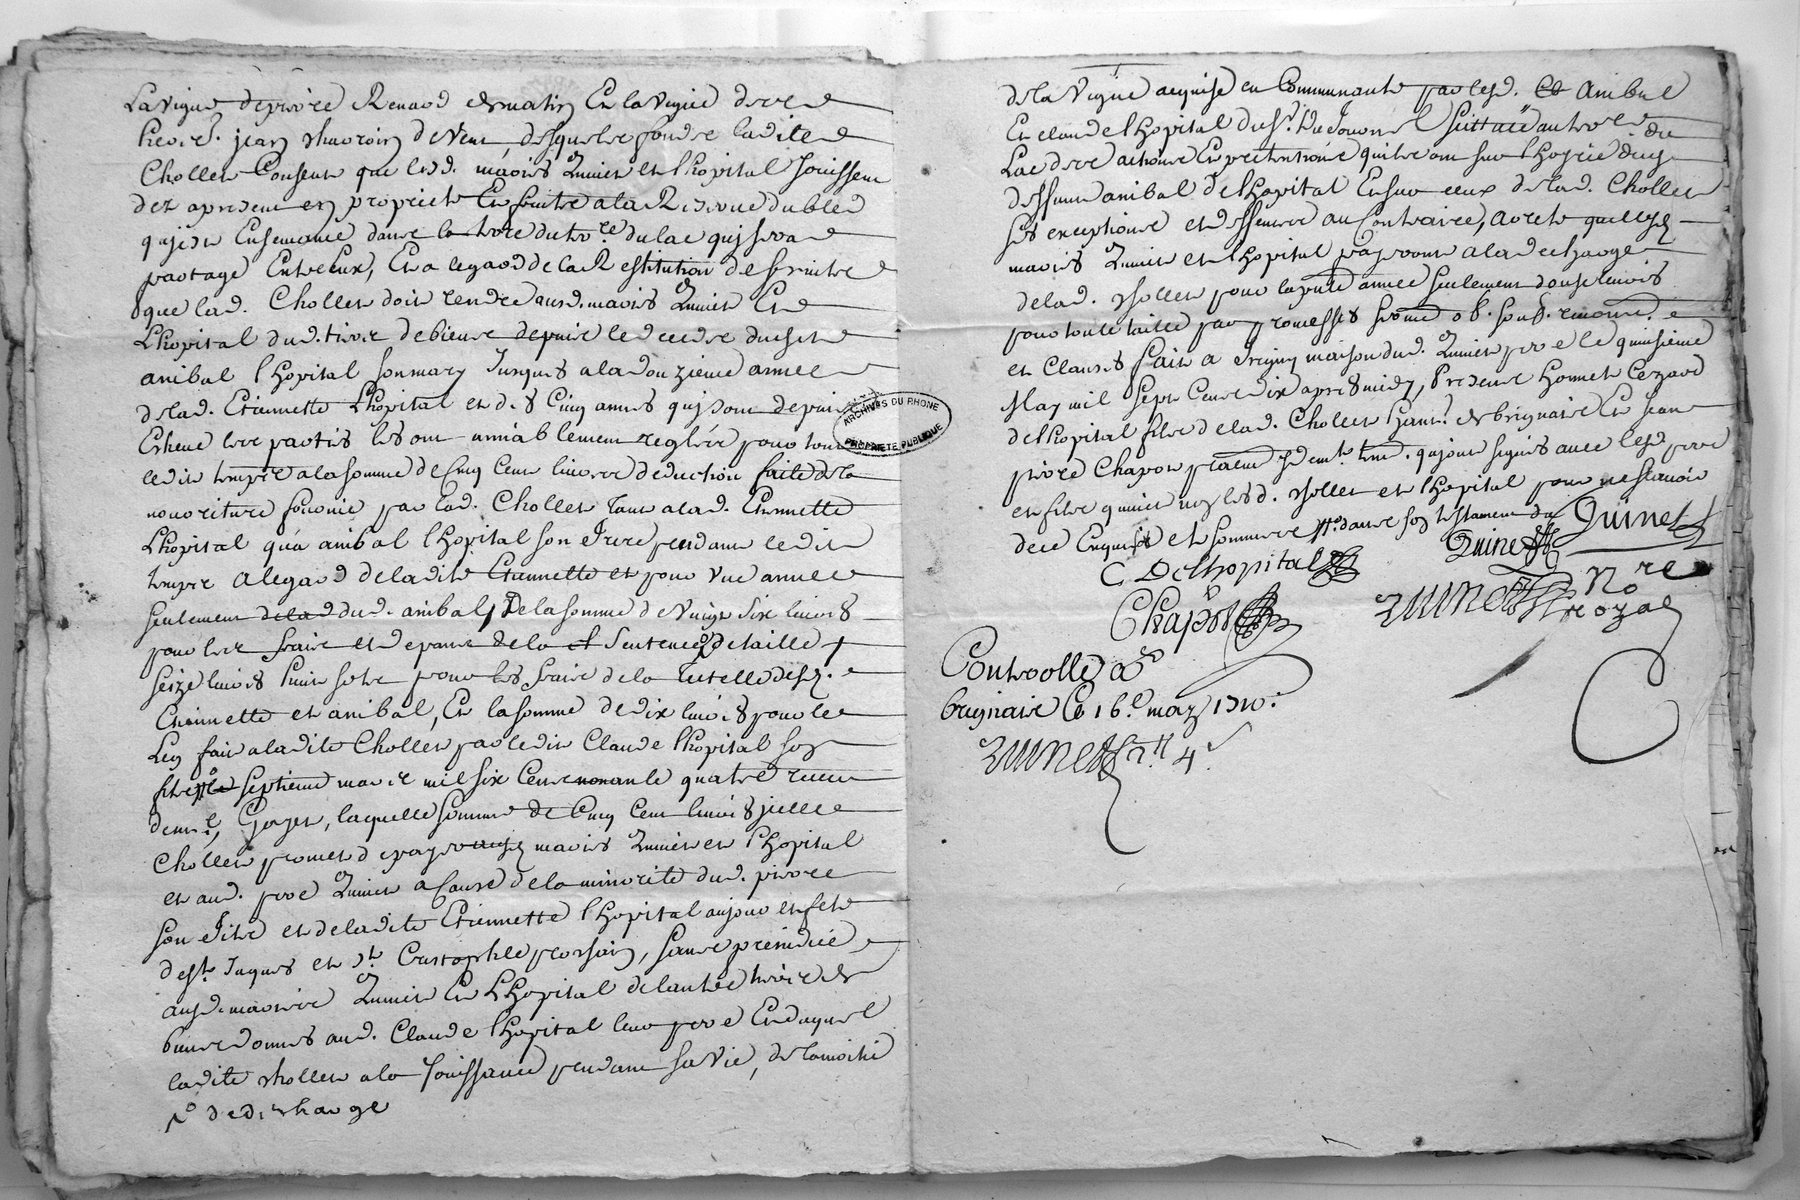 La vigne de pierre Renaod de matin Et la vigne des
heoirs. jean thavoin de vent, desquels fondz ladite
Chollet Consent que lesd. mariés Quinet et l'hopital Jouissent
dez apresent en proprieté Et fruitz a la Reserve du bled
qui est Ensemancé dans la terre du terre. du lac qui sera
partagé Entre Eux, Et a legard de la Restitution des fruitz
que lad. Chollet doit rendre ausd. mariés Quinet Et
Lhopital dud. tiers de biens depuis le deceds dudit
anibal l'hopital son mary Jusques a la douzieme année
de lad. Etiennette Lhopital et des Cinq années qui sont depuis
Escheue les parties les ont amiablement reglées pour tout
ledit temps a la somme de Cinq Cent livres deduction faite de la
nourriture fournie par lad. Chollet Tant a lad. Etiennette
Lhopital qu'a anibal l'hopital son frere pendant ledit
temps a legard de ladite Etiennette et pour une année
seulement dud. anibal, De la somme de vingt six livres
pour les fraix et depans de la Sentence de taille
seize livres huit solz pour les fraix de la tutelle desd.
Etiennette et anibal, Et la somme de dix livres pour le
Leg fait a ladite Chollet par ledit Claude l'hopital son
filz septieme mars mil six Cent nonante quatre receu
demt. Goyet, laquelle somme de Cinq Cent livres icelle
Chollet promet de payer ausd. mariés Quinet et l'hopital
et aud. pere Quinet a Cause de la minorité dud. pierre
son filz et de ladite Etiennette l'hopital au jour et feste
de st. Jaques et st. Cristophle prochain, sans prejudice
ausd. mariés Quinet Et Lhopital de l'autre tiers des
biens donnés aud. Claude l'hopital leur pere Et duquel
ladite chollet a la Jouissance pendant sa vie, de la moitié
de descharge
de la Vigne acquise en Communauté par lesd. anibal
Et claude l'hopital du Sr. Du Jouonnel scittuée au terre du
Lac des actions Et pretentions quils ont sur l'hoyrie dud.
deffunt anibal de l'hopital Et sur ceux de lad. Chollet
ses exceptions et deffences au Contraire, acrete que lesd.
mariés Quinet et l'hopital payeront a la descharge
de lad. chollet pour la pnte année seulement douse livres
pour toute taille par promesses serment ob. soub. renonc.
et clauses fait a Irigny maison dud. Quinet pere le quinsieme
May mil sept Cent dix apres midy, Presens honnete Cezard
de l'hopital filz de lad. Chollet hant. de brignaix Et Jean
pierre Chapot praticien temt. qui ont signés avec lesd. pere
et filz quinet non lesd. chollet et l'hopital pour ne sçavoir
dece Enquis et sommés
Quinet
C Delhopital Quinet
Chapot Quinet Nore royal
Controollé a
brignaix Ce 16.e may 1710.
Quinet
ARCHIVES DU RHONE
PROPRIETE PUBLIQUE